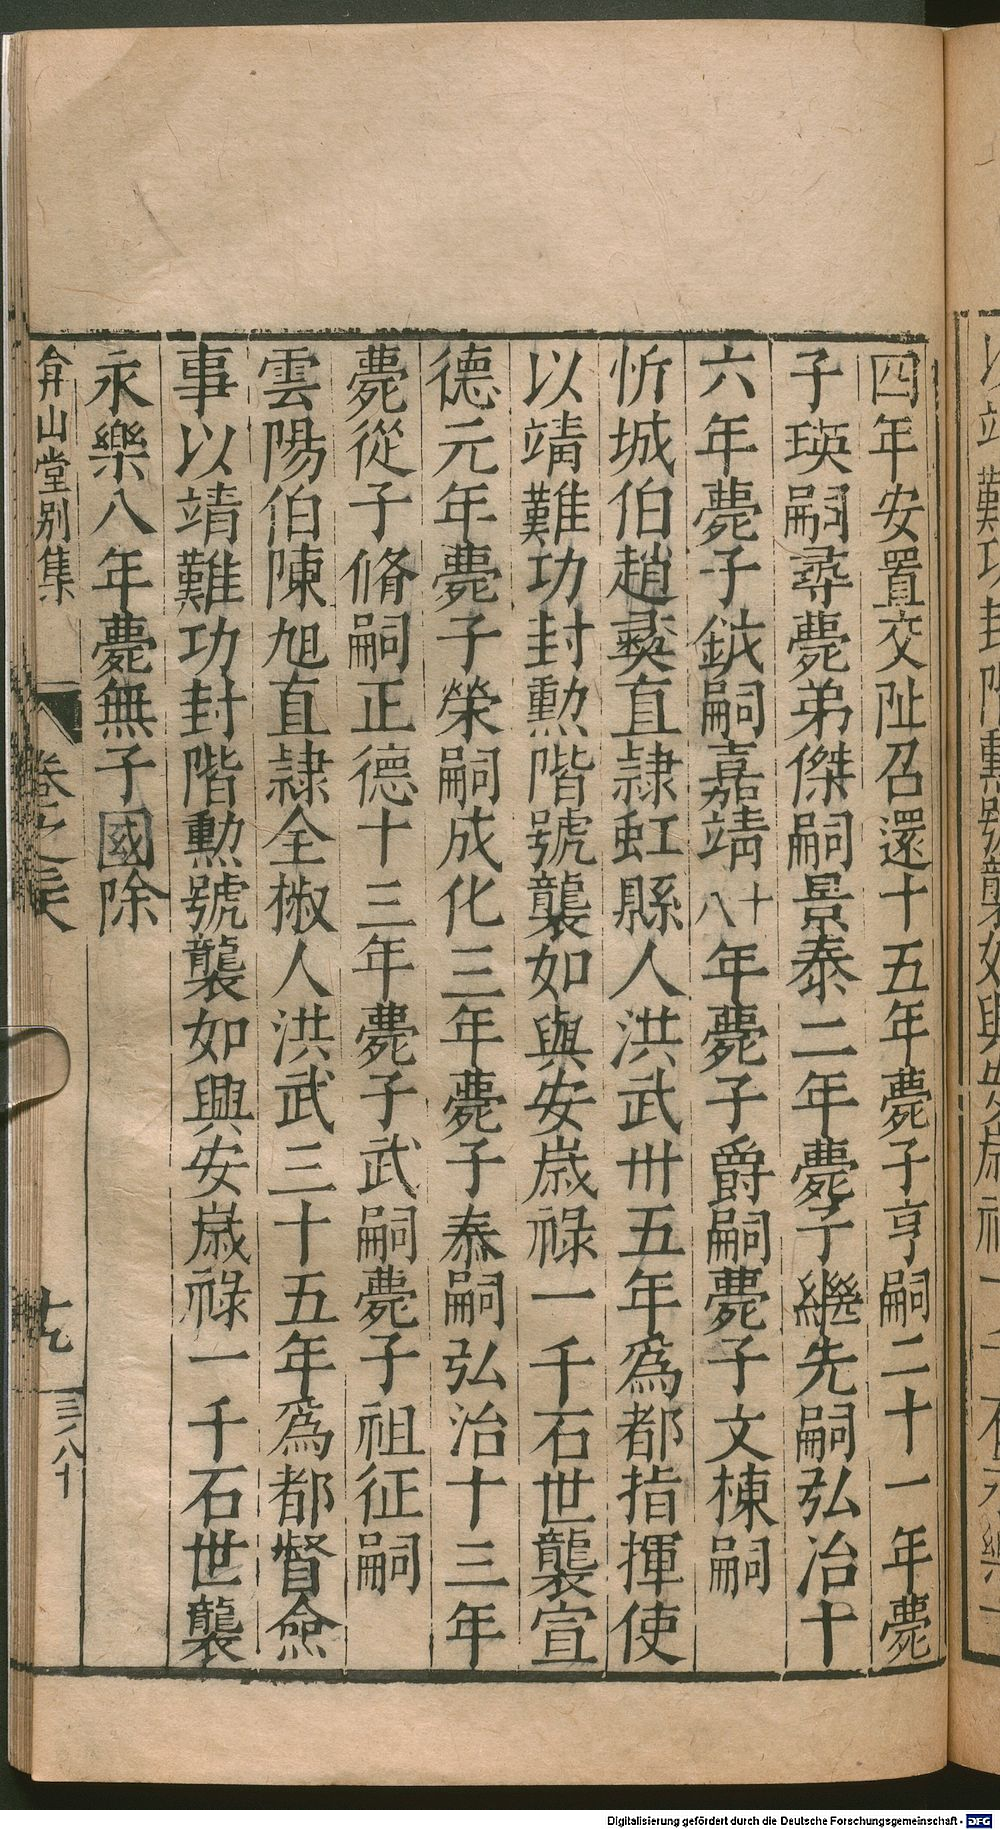 四年安置交阯召還十五年薨子亨嗣二十一年薨
子瑛嗣尋薨弟傑嗣景泰二年薨子繼先嗣弘治十
六年薨子鉞嗣嘉靖十八年薨子爵嗣薨子文棟嗣
忻城伯趙彝直隷虹縣人洪武卅五年爲都指揮使
以靖難功封勲階號襲如與安歲祿一千石世襲宣
德元年薨子榮嗣成化三年薨子泰嗣弘治十三年
薨從子脩嗣正德十三年薨子武嗣薨子祖征嗣
雲陽伯陳旭直隷全椒人洪武三十五年爲都督僉
事以靖難功封階勲號襲如興安歲祿一千石世襲
永樂八年薨無子國除
弇山堂别集
卷之三
十九
三八十
Digitalisierung gefördert durch die Deutsche Forschungsgemeinschaft - DFG